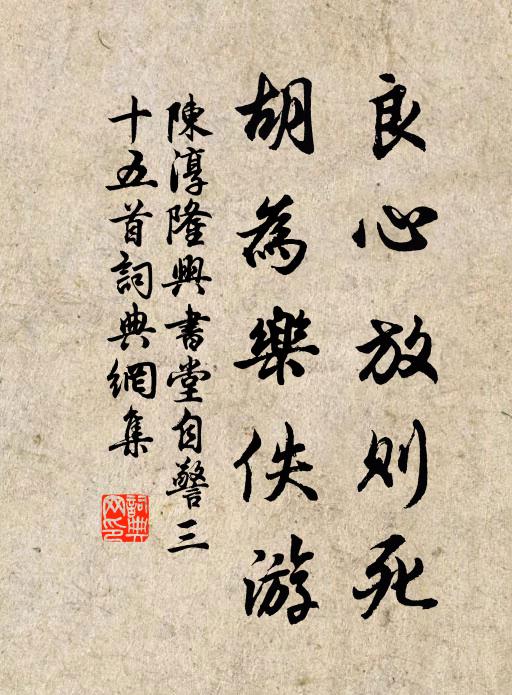 良心放則死
胡為樂佚游
陳淳隆興書堂自警三
十五首詞典網集
詞典網印